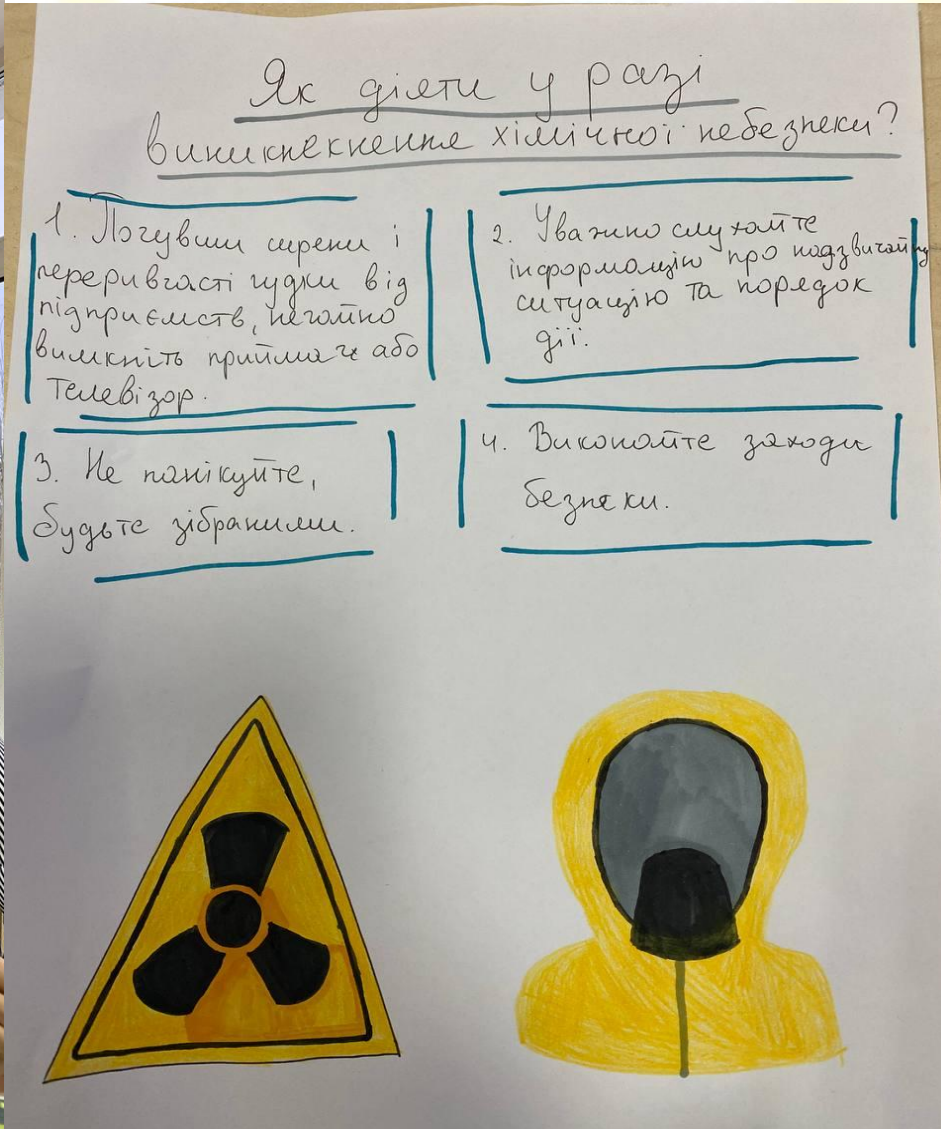 Як діяти у разі
виникнекнення хімічної небезпеки?
1. Почувши сирени і
переривчасті гудки від
підприємств, негайно
вимкніть приймач або
телевізор.
2. Уважно слухайте
інформацію про надзвичайну
ситуацію та порядок
дії.
3. Не панікуйте,
будьте зібраними.
4. Виконайте заходи
безпеки.